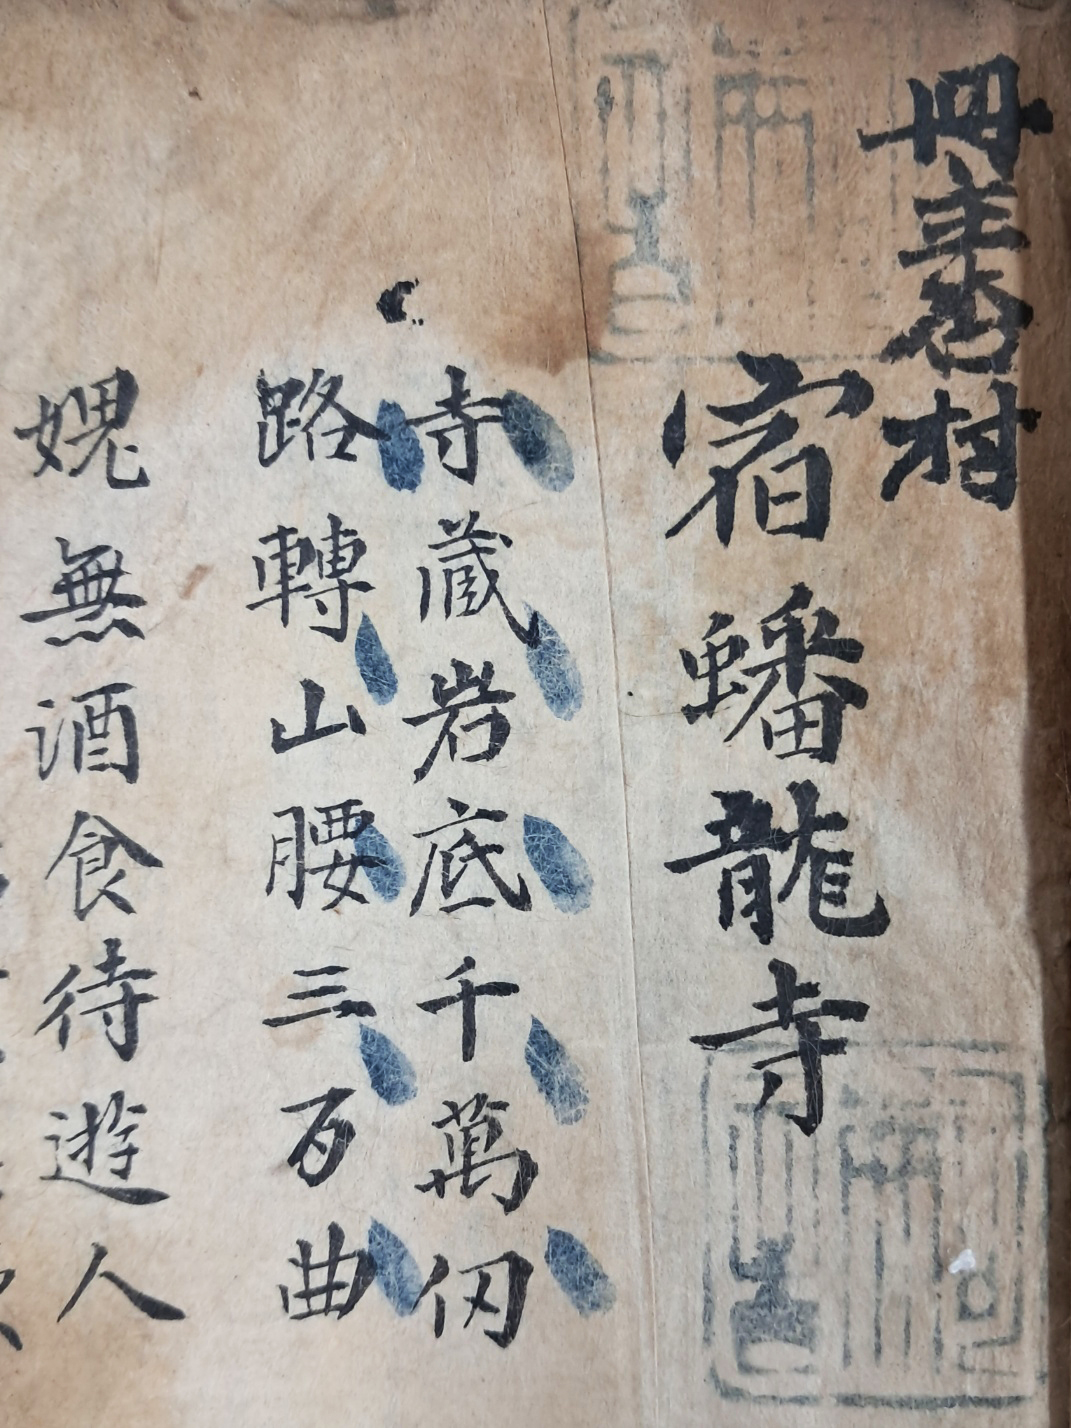 冊主杏村
宿蟠龍寺
寺蔵岩底千萬仞
路轉山腰三百曲
媿無酒食待遊人